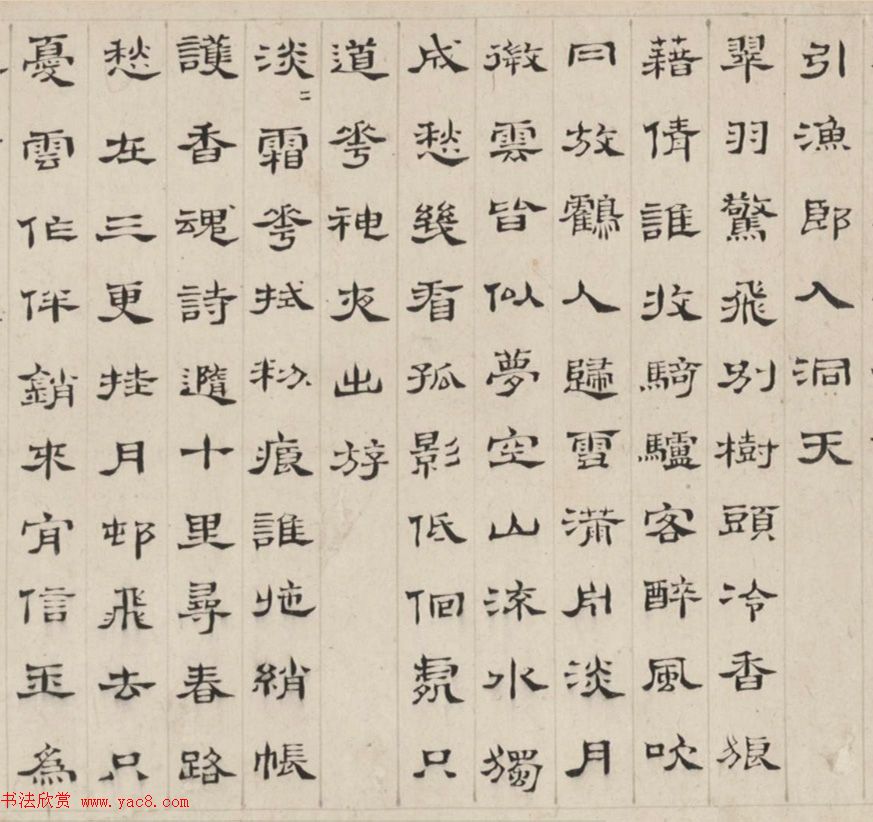 引漁郎入洞天
翠羽驚飛別樹頭冷香狼
藉倩誰收騎驢客醉風吹
冃放鶴人歸雪滿舟淡月
微雲皆似夢空山流水獨
成愁幾看孤影低佪處只
道華神夜出游
淡〻霜華拭粉痕誰施綃帳
護香魂詩隨十里尋春路
愁在三更挂月邨飛去只
憂雲作伴銷來肯信玉為
书法欣赏 www.yac8.com